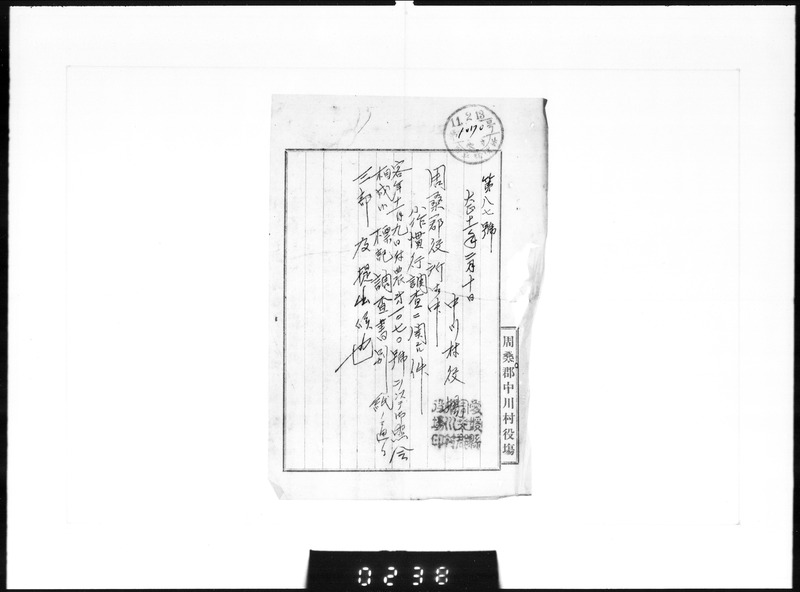 11.2.13
10170
第八七號
大正十一年二月十日
中川村役
周桑郡役所御中
小作慣行調査ニ関スル件
客年十二月九日付農才一〇七〇號ニ次テ御照会
相成候標記調査書別紙ノ通リ
三部及提出候也
愛媛縣周桑郡中川村役場印
周桑郡中川村役塲
0238